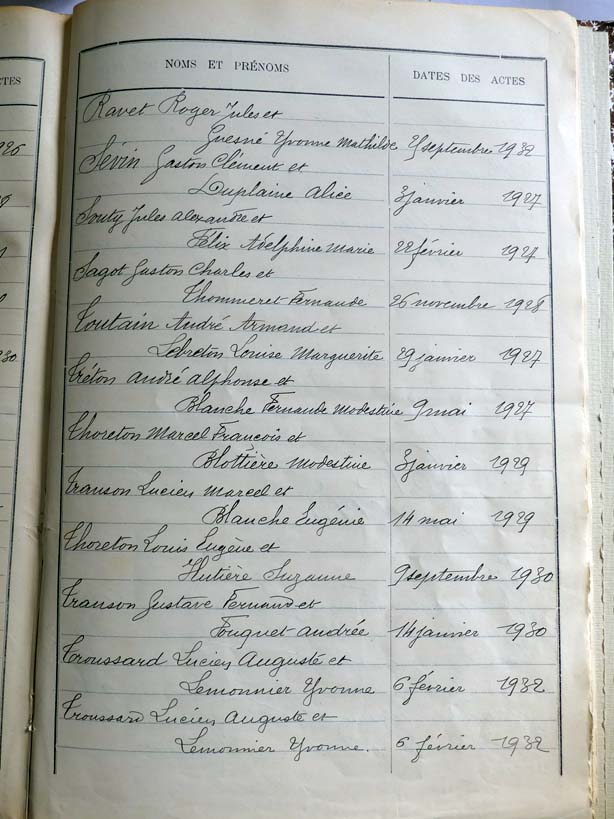 CTES
NOMS ET PRÉNOMS DATES DES ACTES
Ravet Roger Jules et
Guesné Yvonne Mathilde septembre 1932
Sévin Gaston Clément et
Duplaine Alice 3 janvier 1927
Souty Jules Alexandre et
Félix Adelphine Marie 22 février 1927
Sagot Gaston Charles et
Thommeret Fernande 26 novembre 1928
Toutain André Armand et
Lebreton Louise Marguerite 29 janvier 1927
Tréton André Alphonse et
Blanche Fernande Modestine 9 mai 1927
Thoreton Marcel François et
Blottière Modestine 3 janvier 1929
Transon Lucien Marcel et
Blanche Eugénie 14 mai 1929
Thoreton Louis Eugène et
Hutière Suzanne 9 septembre 1930
Transon Gustave Fernand et
Fouquet Andrée 14 janvier 1930
Troussard Lucien Auguste et
Lemonnier Yvonne 6 février 1932
Troussard Lucien Auguste et
Lemonnier Yvonne. 6 février 1932